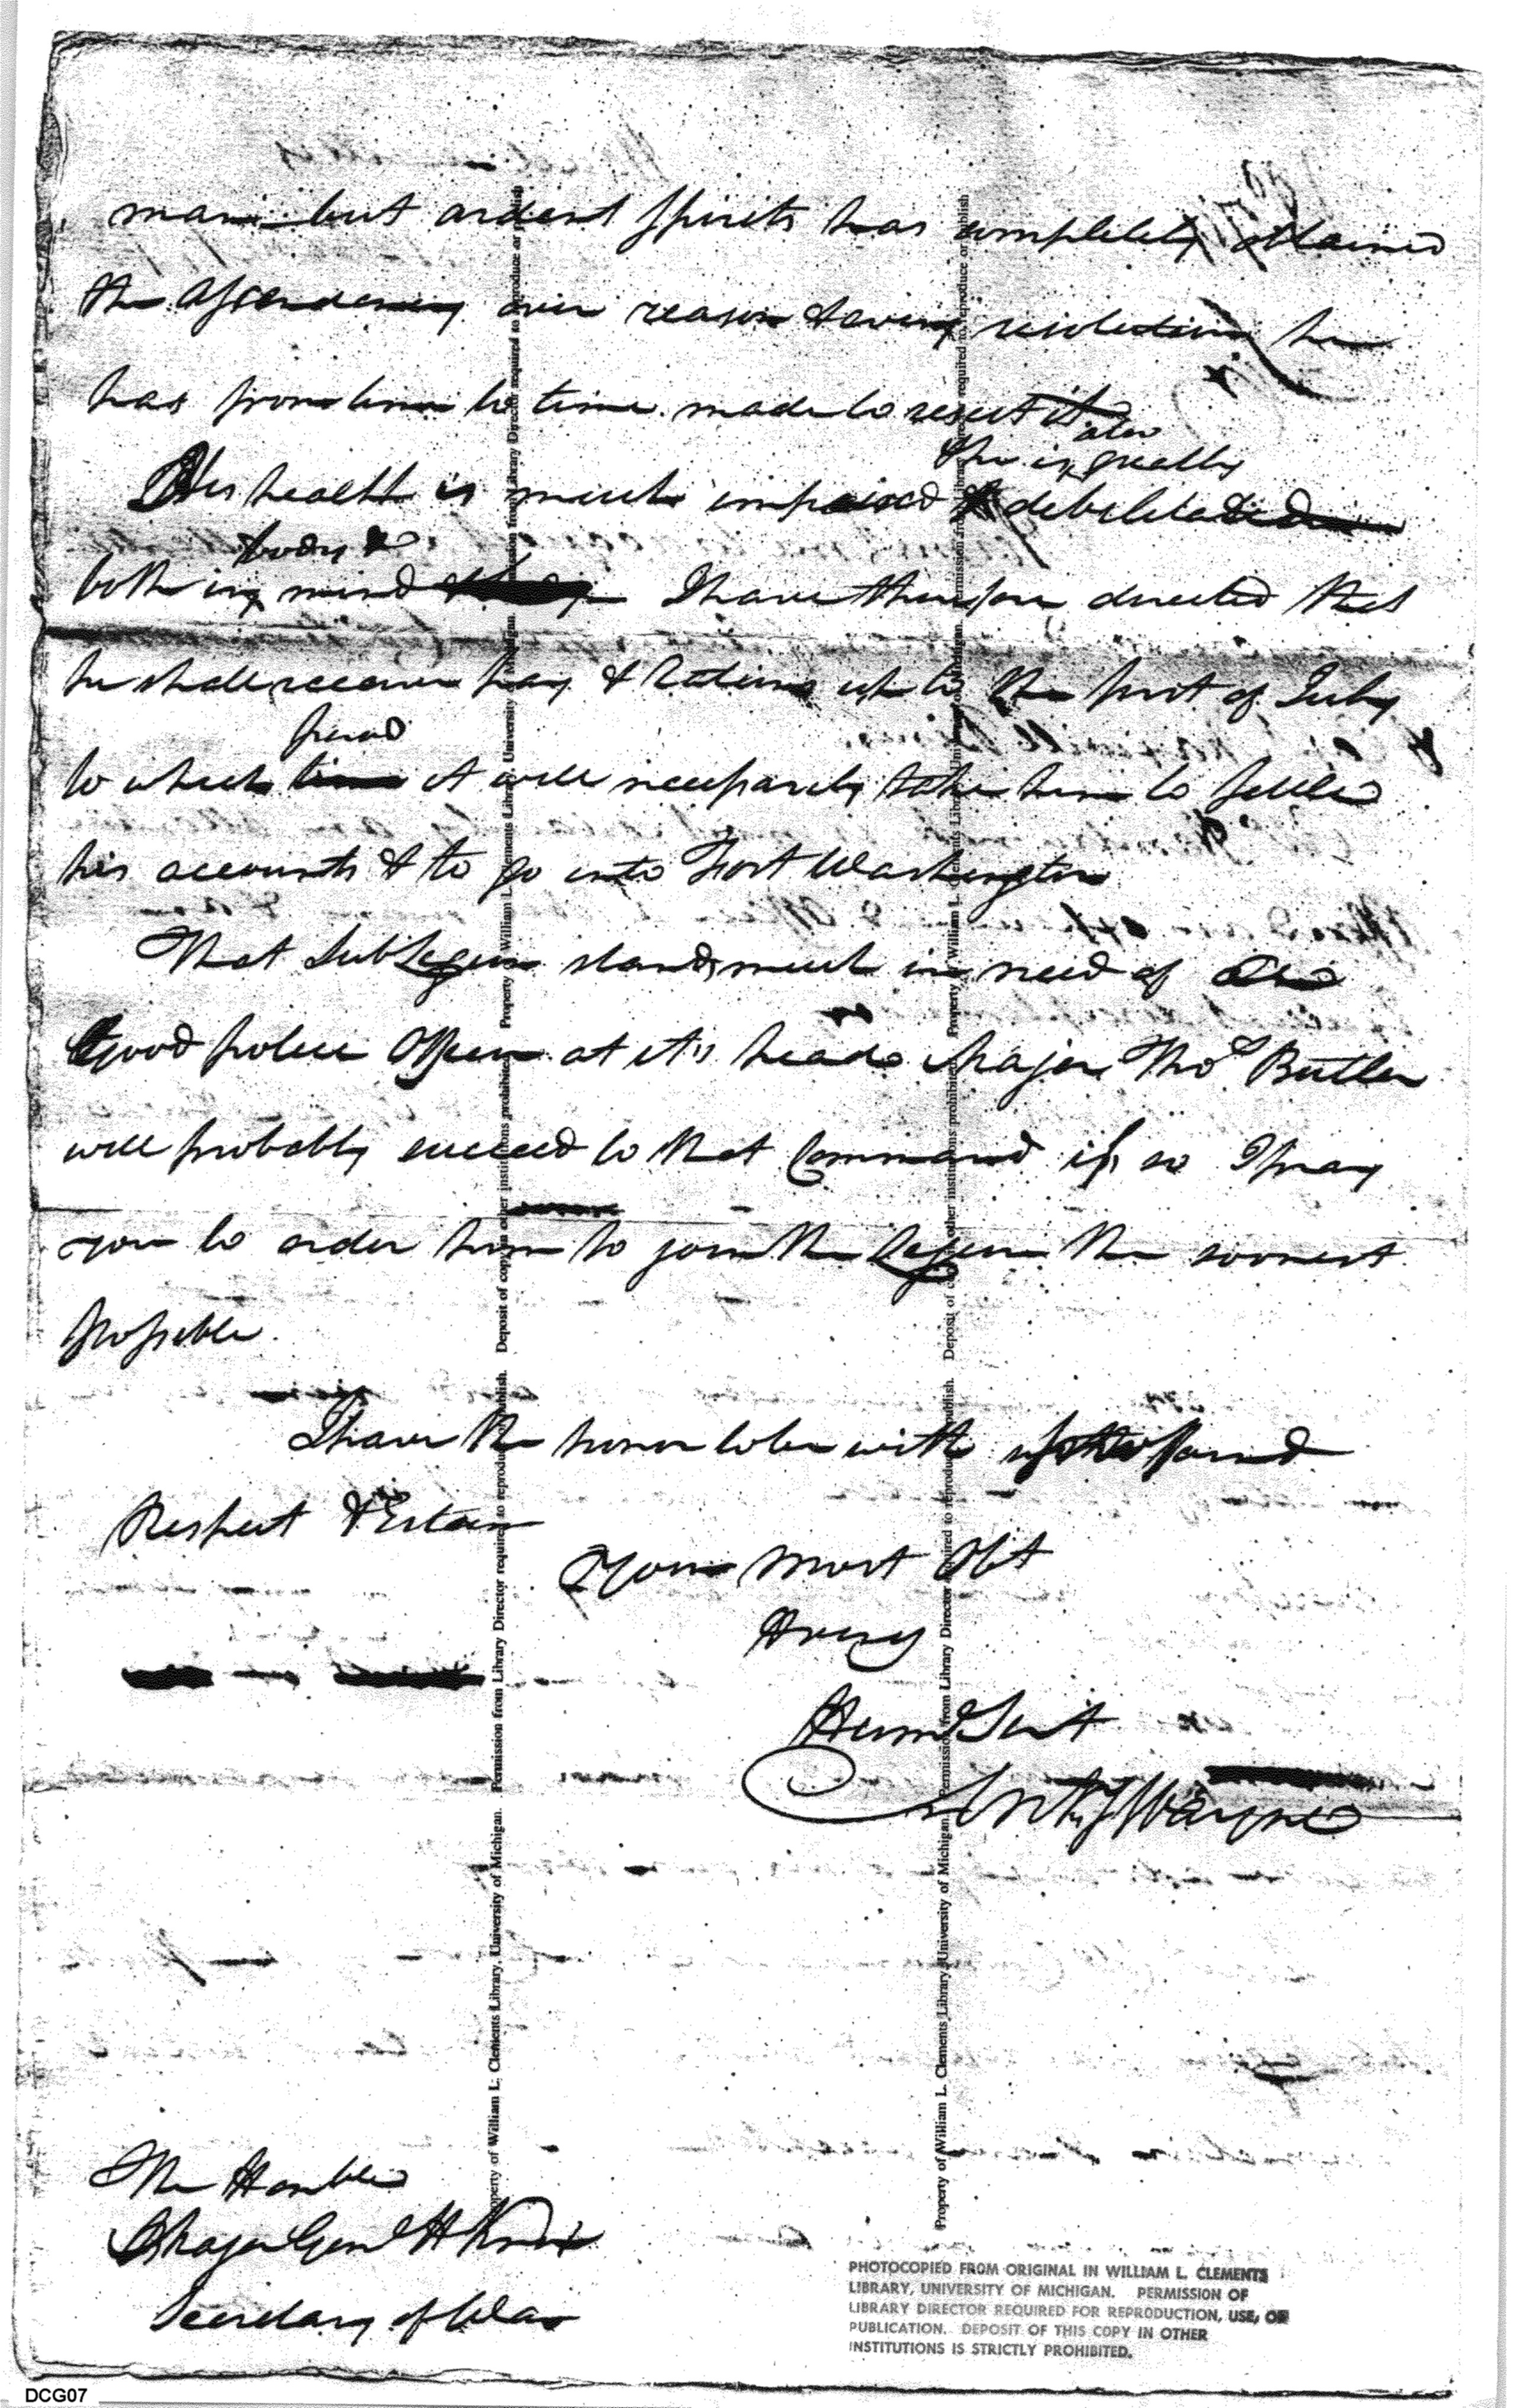 man - but ardent spirits has completely attained
the Ascendency over reason & every resolution he
has from time to time made to resist it
he is also greatly
His health is much impaired & debilitated
body &
both in mind I have therefore directed that
he shall receive pay & Rations up to the first of July
period
to which time it will necessarily take him to settle
his accounts & to go into Fort Washington
That Sub Legion stands much in need of a
good police Officer at it's head Major Thos Butler
will probably succeed to that Command if so I pray
you to order him to join the Legion the soonest
possible.
I have the honor to be with
Respect & Esteem
Your most Obt
Humbl Sert
Anty Wayne
The Honble
Major Genl H Knox
Secretary of War
PHOTOCOPIED FROM ORIGINAL IN WILLIAM L. CLEMENTS
LIBRARY, UNIVERSITY OF MICHIGAN. PERMISSION OF
LIBRARY DIRECTOR REQUIRED FOR REPRODUCTION, USE, OR
PUBLICATION. DEPOSIT OF THIS COPY IN OTHER
INSTITUTIONS IS STRICTLY PROHIBITED.
Property of William L. Clements Library, University of Michigan. Permission from Library Director required to reproduce or publish. Deposit of copy in other institutions prohibited.
Property of William L. Clements Library, University of Michigan. Permission from Library Director required to reproduce or publish
Property of William L. Clements Library, University of Michigan. Permission from Library Director required to reproduce or publish. Deposit of copy in other institutions prohibited.
Property of William L. Clements Library, University of Michigan. Permission from Library Director required to reproduce or publish
DCG07